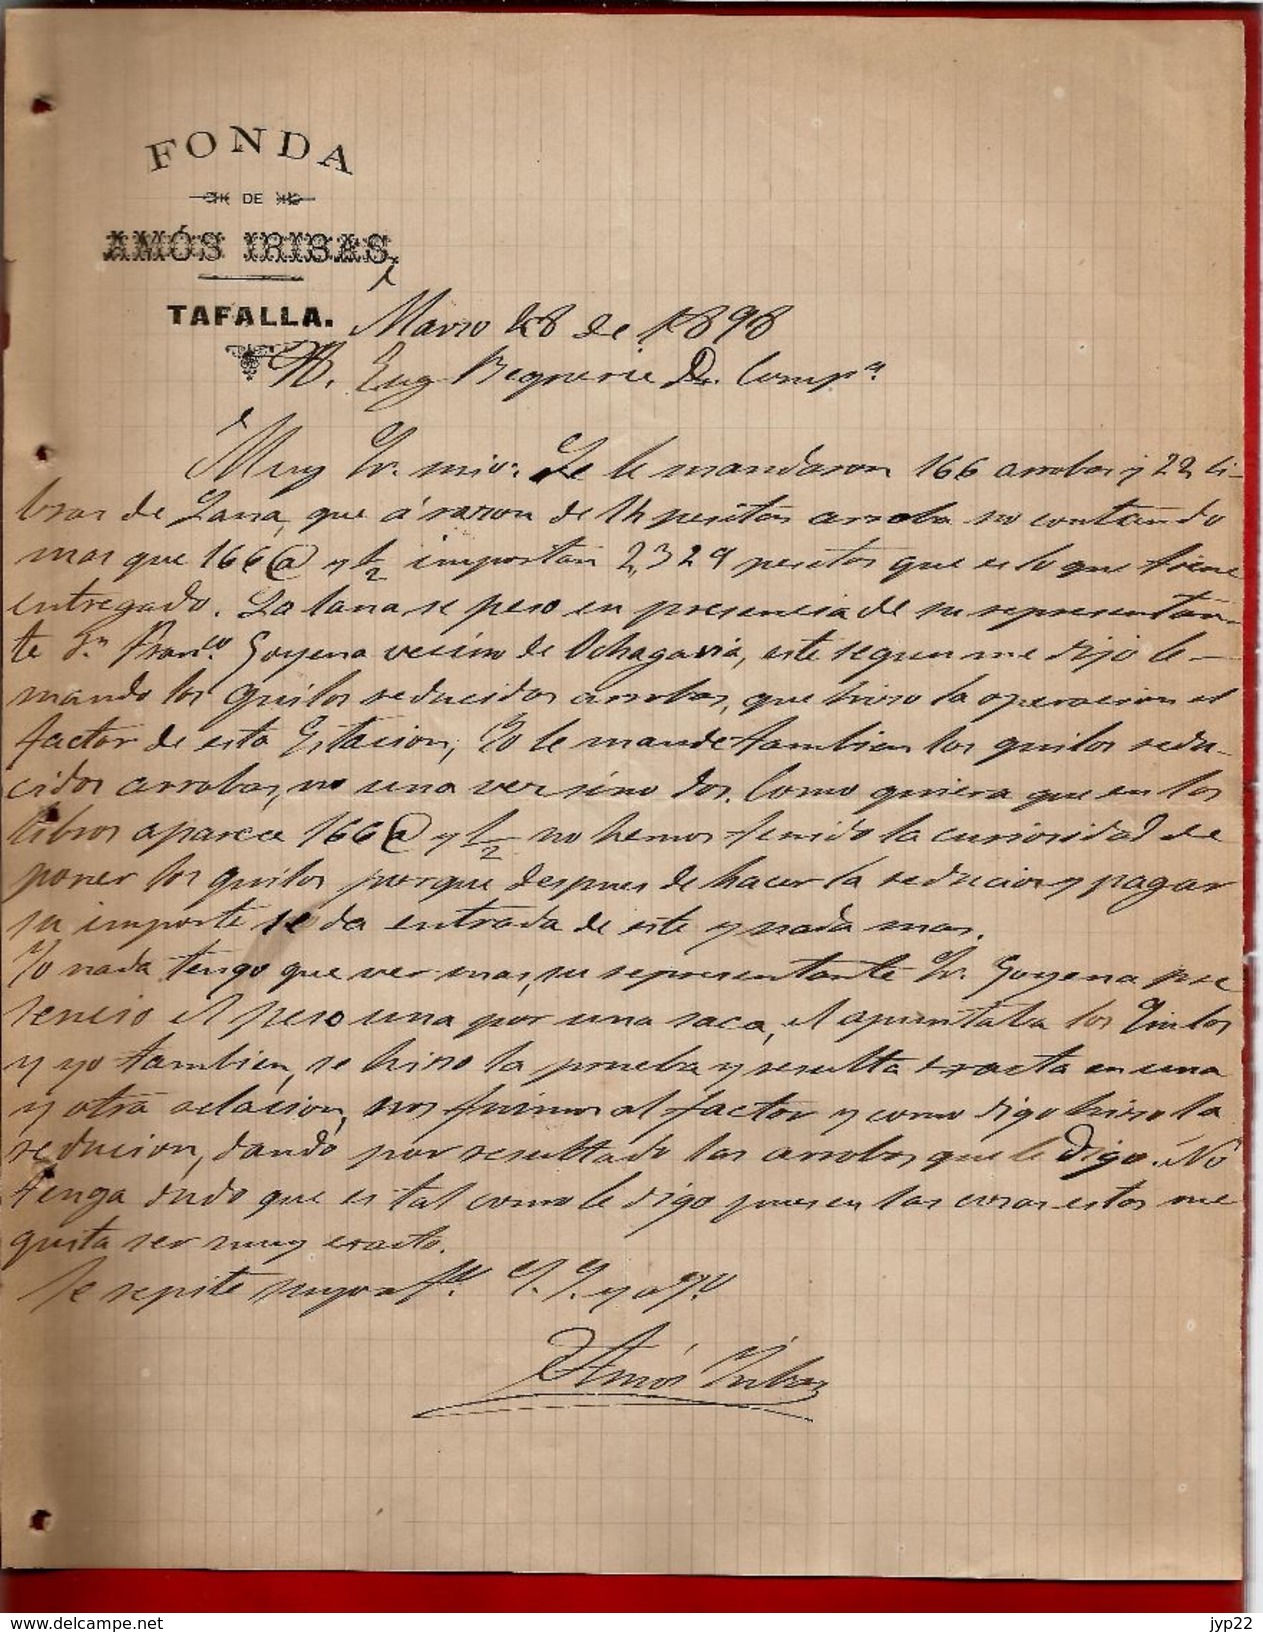 FONDA
DE
AMÓS IRIBAS
TAFALLA.
Marzo 28 de 1898
M. Eug Beguerie Comp.ª
Muy Sr. mio: Se le mandaron 166 arrobas y 22 li-
bras de Lana, que á razon de 14 pesetas arroba no contando
mas que 166@ y ½ importan 2,329 pesetas que es lo que tiene
entregado. La lana se peso en presencia de su representan-
te Dn Franco. Goyena vecino de Ochagavia, este segun me dijo le
mando los quilos reducidos arrobas, que hizo la operacion el
factor de esta Estacion, Yo le mande tambien los quilos redu-
cidos arrobas, no una vez sino dos. Como quiera que en los
libros aparece 166@ y ½ no hemos tenido la curiosidad de
poner los quilos porque despues de hacer la reducion y pagar
su importe se da entrada de este y nada mas.
Yo nada tengo que ver mas, su representante Sr. Goyena pre
sencio el peso una por una saca, el apuntaba los Quilos
y yo tambien, se hizo la prueba y resulta exacta en una
y otra relacion, nos fuimos al factor y como digo hizo la
reducion, dando por resultado las arrobas que le Digo. No
tenga duda que es tal como le digo pues en las cosas estas me
gusta ser muy exacto.
Se repite suyo af.º S. S. y a.º
Amós Iribas
www.delcampe.net
jyp22